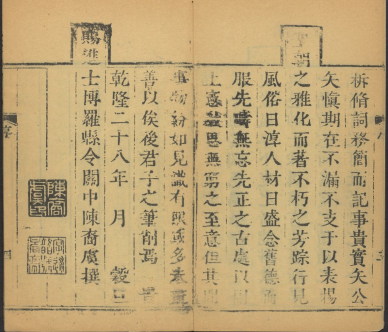 析脩詞務簡而記事貴實矢公
矢慎期在不漏不支于以表揚
聖朝
之雅化而著不朽之芳踪行見
風俗日淳人材日盛念舊德而
服先疇無忘先正之古處以
上思無
之至意但其
事物紛如見識有限遺多未
善以俟後君子之筆削焉 旹
乾隆二十八年 月 穀旦
賜進
士博羅縣令關中陳裔虞撰
陳裔虞印